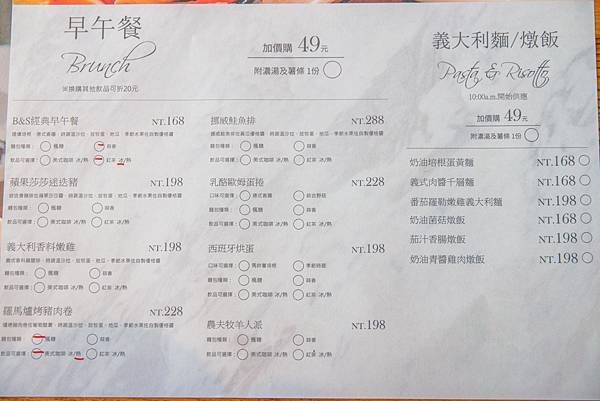 早午餐
Brunch
※換購其他飲品可折20元
加價購 49元
附濃湯及薯條 1份
B&S經典早午餐 NT.168
麵包種類： 楓糖 蒜香
飲品可選擇： 美式咖啡 冰/熱 紅茶 冰/熱
蘋果莎莎迷迭豬 NT.198
麵包種類： 楓糖 蒜香
飲品可選擇： 美式咖啡 冰/熱 紅茶 冰/熱
義大利香料嫩雞 NT.198
麵包種類： 楓糖 蒜香
飲品可選擇： 美式咖啡 冰/熱 紅茶 冰/熱
羅馬爐烤豬肉卷 NT.228
麵包種類： 楓糖 蒜香
飲品可選擇： 美式咖啡 冰/熱 紅茶 冰/熱
挪威鮭魚排 NT.288
麵包種類： 楓糖 蒜香
飲品可選擇： 美式咖啡 冰/熱 紅茶 冰/熱
乳酪歐姆蛋捲 NT.228
麵包種類： 楓糖 蒜香
飲品可選擇： 美式咖啡 冰/熱 紅茶 冰/熱
西班牙烘蛋 NT.198
麵包種類： 楓糖 蒜香
飲品可選擇： 美式咖啡 冰/熱 紅茶 冰/熱
農夫牧羊人派 NT.198
麵包種類： 楓糖 蒜香
飲品可選擇： 美式咖啡 冰/熱 紅茶 冰/熱
義大利麵/燉飯
Pasta & Risotto
10:00a.m.開始供應
加價購 49元
附濃湯及薯條 1份
奶油培根蛋黃麵 NT.168
義式肉醬千層麵 NT.168
番茄羅勒嫩雞義大利麵 NT.198
奶油菌菇燉飯 NT.168
茄汁香腸燉飯 NT.198
奶油青醬雞肉燉飯 NT.198